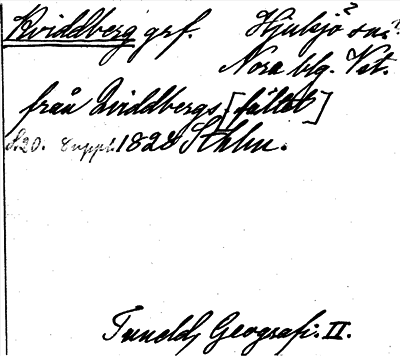 Kviddberg grf. Hjulsjö? sn?
Nora blg. Vst.
från Qviddbergs [fältet]
S.20. Suppl. 1828 Sthlm.
Tuneld, Geografi. II.